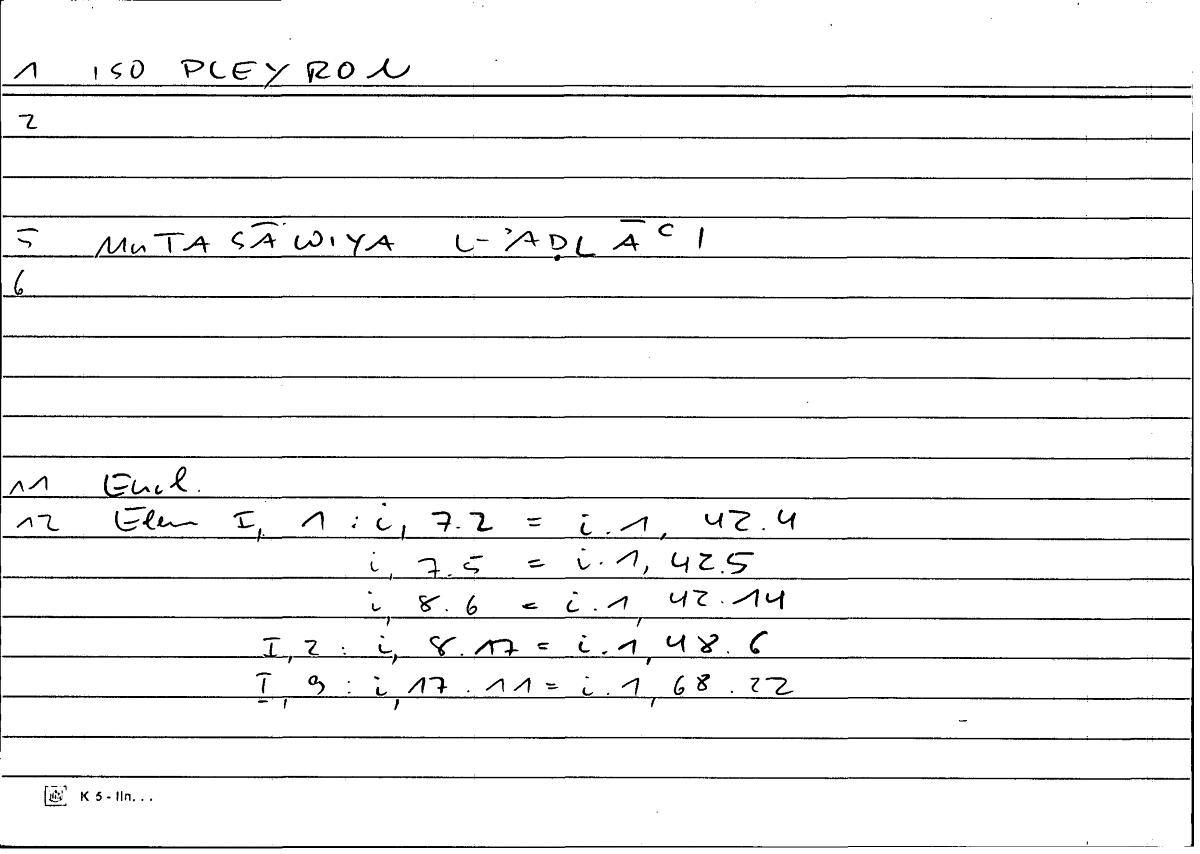 1 ISO PLEYRON
2
5 MUTASĀWIYA L-ʾAḌLĀʿI
6
11 Eucl.
12 Elem I, 1 : i, 7.2 = i.1, 42.4
i, 7.5 = i.1, 42.5
i, 8.6 = i.1, 42.14
I, 2 : i, 8.17 = i.1, 48.6
I, 9 : i, 17.11 = i.1, 68.22
K 5 - lln. . .